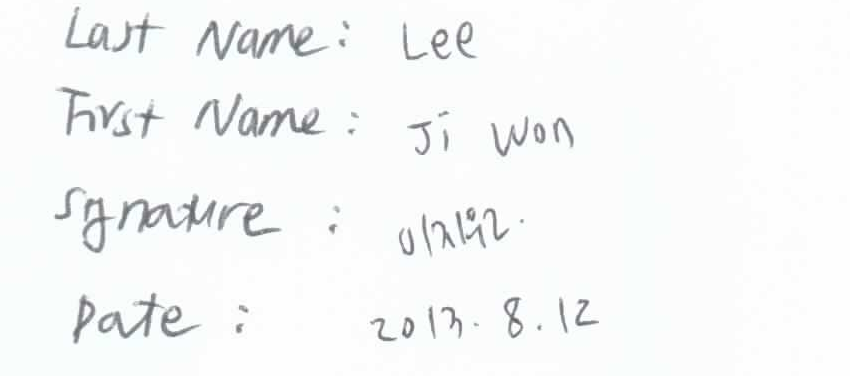 Last Name: Lee
First Name: Ji Won
Signature : 이지원.
Date : 2013. 8. 12